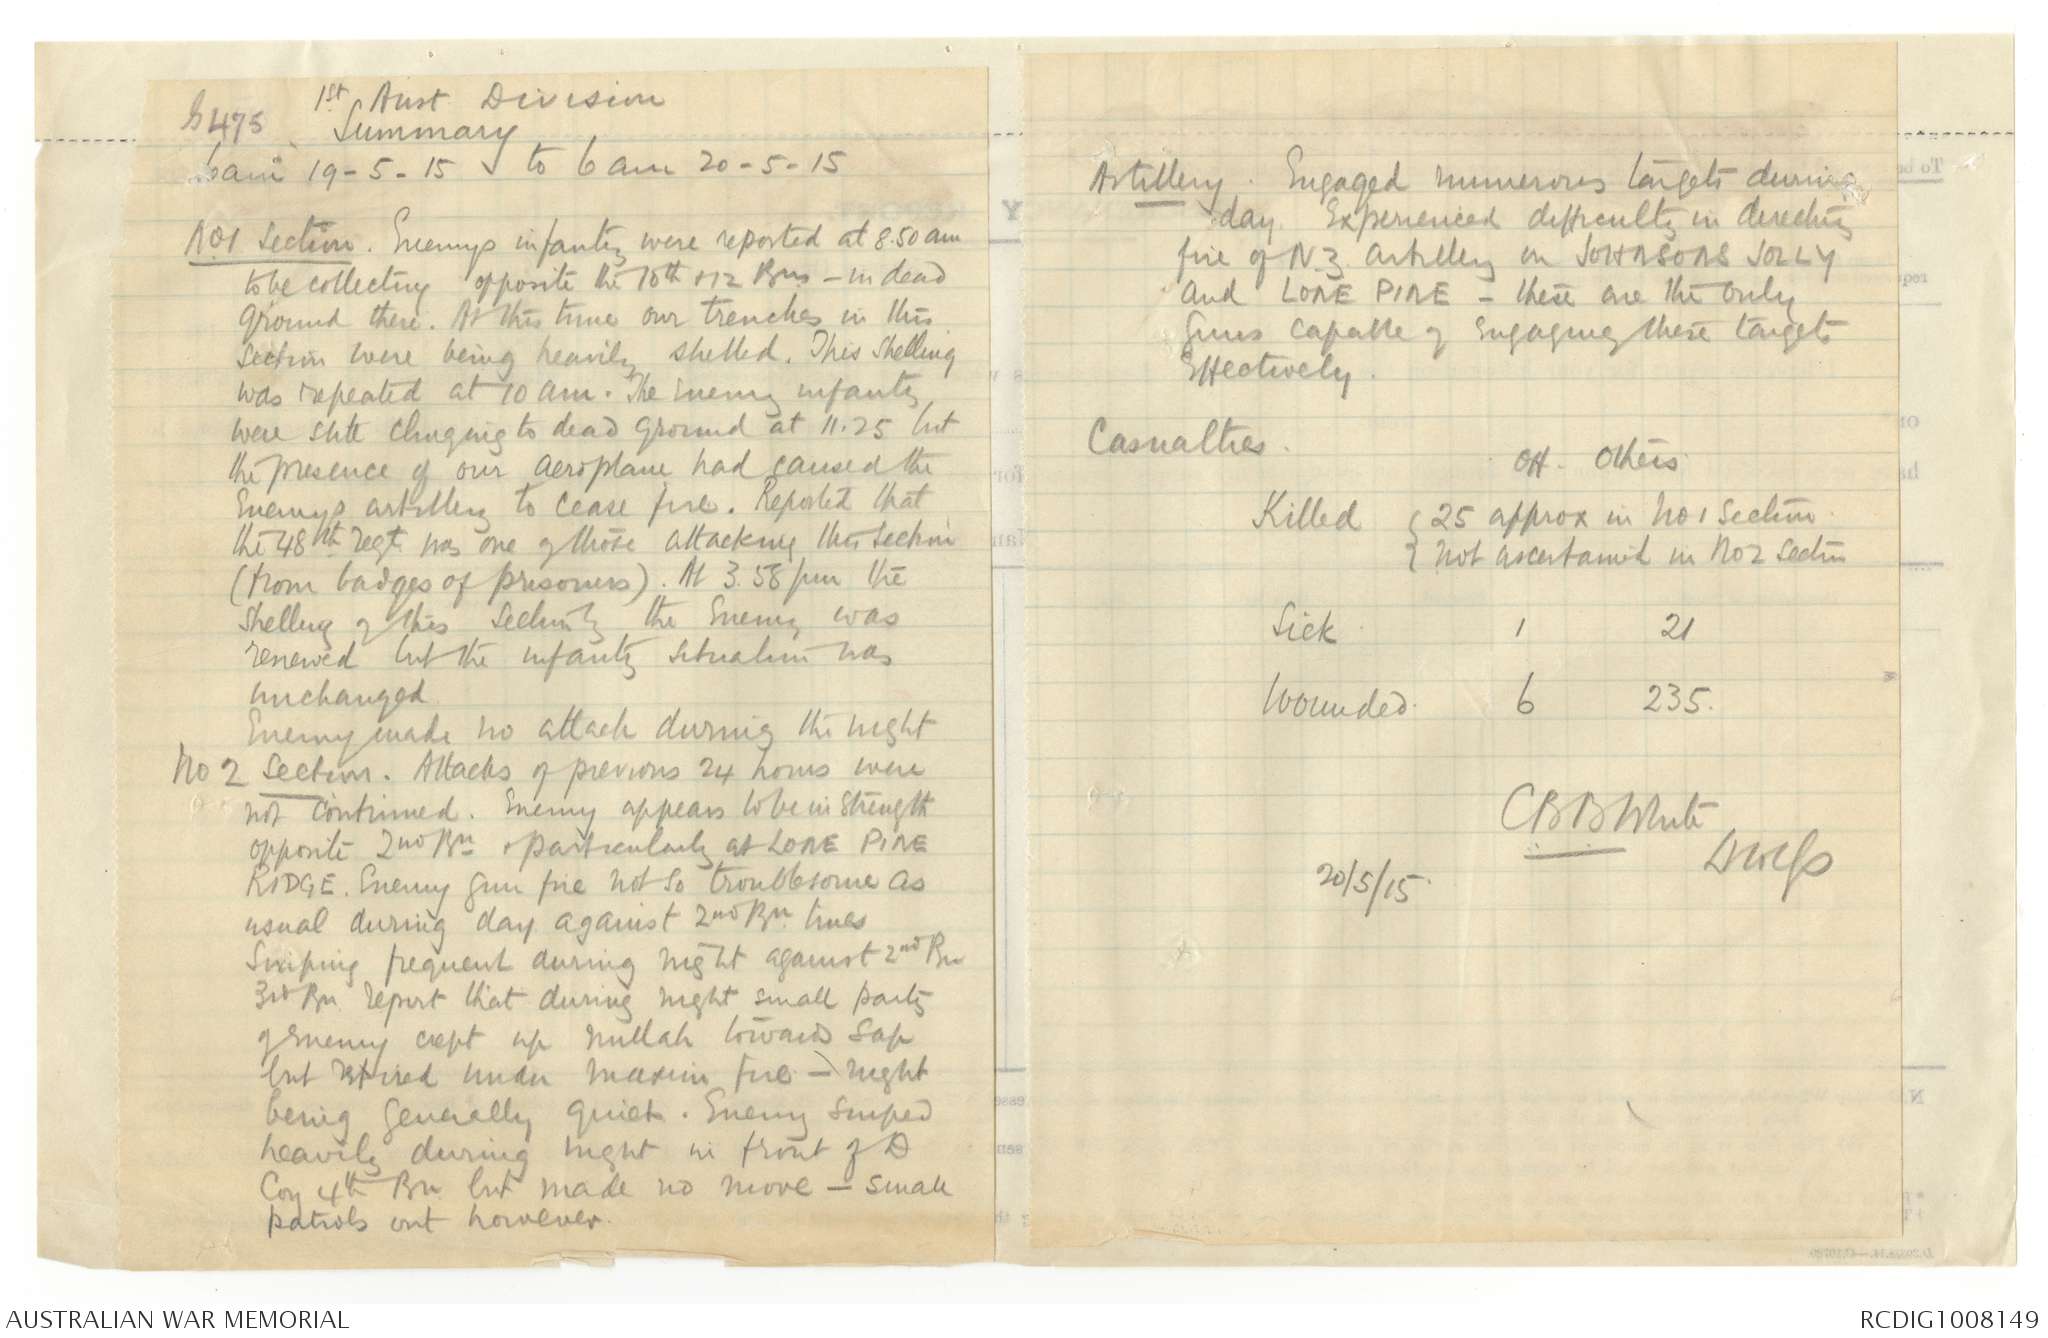 G475
1st Aust Division
Summary
6am 19-5-15 to 6am 20-5-15
No1 Section. Enemys infantry were reported at 8.50 am
to be collecting opposite the 10th + 12 Bns - in dead
ground there. At this time our trenches in this
Section were being heavily shelled. This Shelling
was repeated at 10 am. The enemy infantry
were still clinging to dead ground at 11.25 but
the presence of our aeroplane had caused the
Enemys artillery to cease fire. Reported that
the 48th regt was one of those attacking this section
(from badges of prisoners). At 3.58 pm the
shelling of this Section by the Enemy was
renewed but the infantry situation was
unchanged
Enemy made no attack during the night
No 2 Section. Attacks of previous 24 hours were
not continued. Enemy appears to be in strength
opposite 2nd Bn + particularly at LONE PINE
RIDGE. Enemy gun fire not so troublesome as
usual during day against 2nd Bn lines
Sniping frequent during night against 2nd Bn
3rd Bn report that during night small party
of enemy crept up nullah towards sap
but retired under maxim fire - night
being generally quiet. Enemy sniped
heavily during night in front of D
Coy 4th Bn but made no move - small
patrols out however.
Artillery. Engaged numerous targets during
day. Experienced difficulty in directing
fire of NZ artillery on JOHNSONS JOLLY
and LONE PINE - these are the only
Guns capable of engaging these targets
Effectively.
Casualties.
Off. Others
Killed { 25 approx in No 1 Section
{ not ascertained in No 2 Section
Sick 1 21
Wounded. 6 235.
CBB White
20/5/15
AUSTRALIAN WAR MEMORIAL
RCDIG1008149